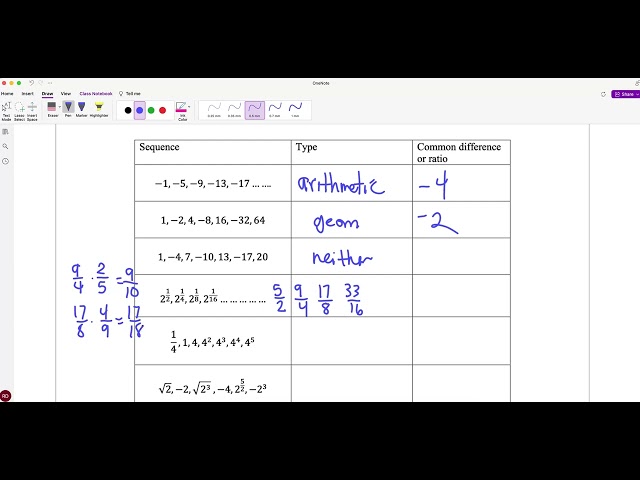 OneNote
Home Insert Draw View Class Notebook Tell me
Share
Text Mode
Lasso Select
Insert Space
Eraser Pen Marker Highlighter
Ink Color
0.25 mm 0.35 mm 0.5 mm 0.7 mm 1 mm
Sequence Type Common difference or ratio
−1, −5, −9, −13, −17 ... .... arithmetic −4
1, −2, 4, −8, 16, −32, 64 geom −2
1, −4, 7, −10, 13, −17, 20 neither
9/4 · 2/5 = 9/10
2 1/2, 2 1/4, 2 1/8, 2 1/16 ... ... ... ... ... 5/2 9/4 17/8 33/16
17/8 · 4/9 = 17/18
1/4, 1, 4, 4², 4³, 4⁴, 4⁵
√2, −2, √2³, −4, 2^(5/2), −2³
RD